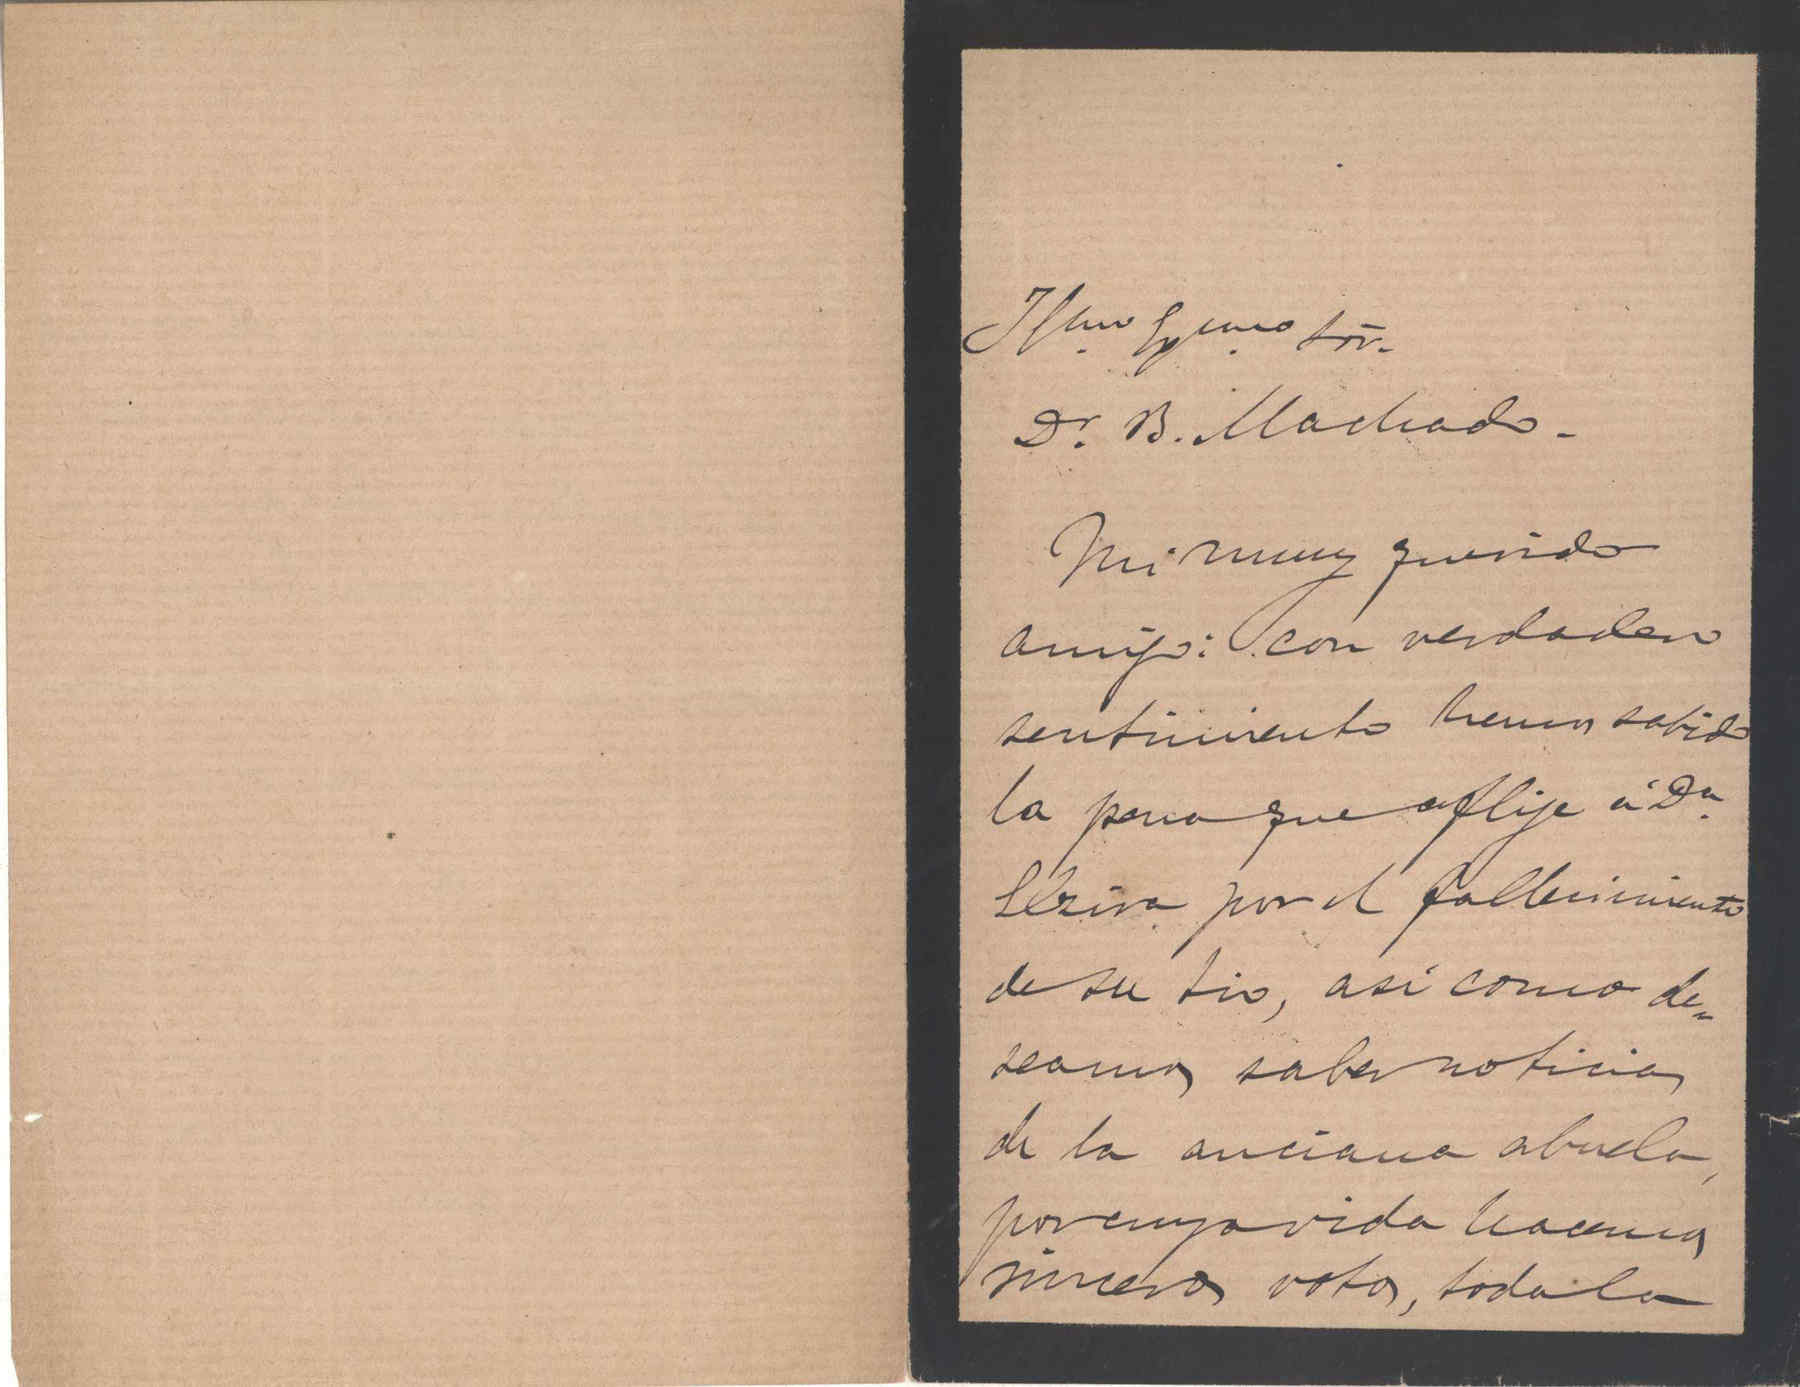 Ilmo. Exmo. Sōr.
Dr. B. Machado.
Mi muy querido
amigo: con verdadero
sentimiento hemos sabido
la pena que aflije á Da.
Elzira por el fallecimiento
de su tio, así como de=
seamos saber noticias
de la anciana abuela,
por cuya vida hacemos
sinceros votos, toda la